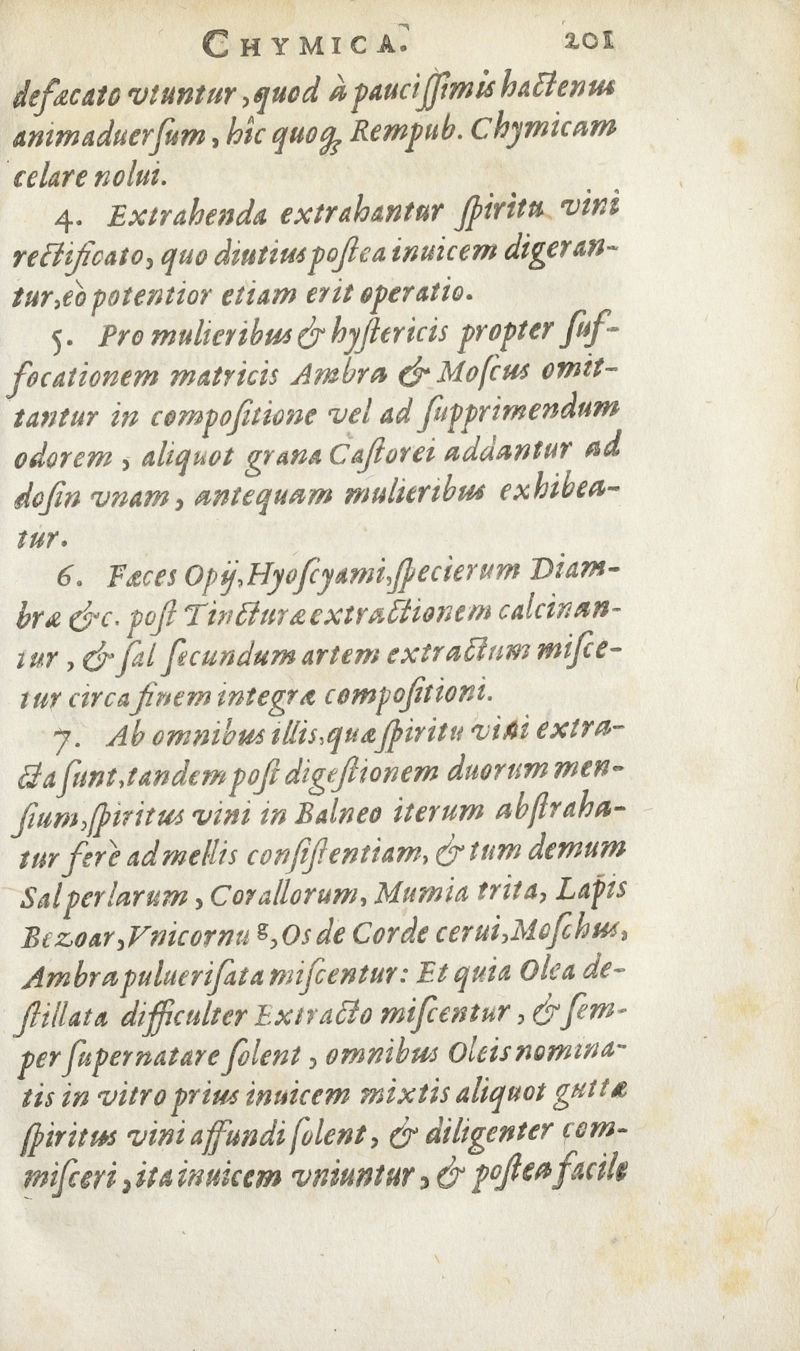 CHYMICA. 201
defæcato vtuntur, quod à pauciſſimis hactenus
animaduerſum, hîc quoq; Rempub. Chymicam
celare nolui.
4. Extrahenda extrahantur ſpiritu vini
rectificato, quo diutius poſtea inuicem digeran-
tur, eò potentior etiam erit operatio.
5. Pro mulieribus & hyſtericis propter ſuf-
focationem matricis Ambra & Moſcus omit-
tantur in compoſitione vel ad ſupprimendum
odorem, aliquot grana Caſtorei addantur ad
doſin vnam, antequam mulieribus exhibea-
tur.
6. Fæces Opij, Hyoſcyami, ſpecierum Diam-
bræ &c. poſt Tincturæ extractionem calcinan-
tur, & ſal ſecundum artem extractum miſce-
tur circa finem integræ compoſitioni.
7. Ab omnibus illis, quæ ſpiritu vini extra-
cta ſunt, tandem poſt digeſtionem duorum men-
ſium, ſpiritus vini in Balneo iterum abſtraha-
tur ferè ad mellis conſiſtentiam, & tum demum
Sal perlarum, Corallorum, Mumia trita, Lapis
Bezoar, Vnicornu g, Os de Corde cerui, Moſchus,
Ambra puluerisata miſcentur: Et quia Olea de-
ſtillata difficulter Extracto miſcentur, & ſem-
per ſupernatare ſolent, omnibus Oleis nomina-
tis in vitro prius inuicem mixtis aliquot guttæ
ſpiritus vini affundi ſolent, & diligenter com-
miſceri, ita inuicem vniuntur, & poſtea facile